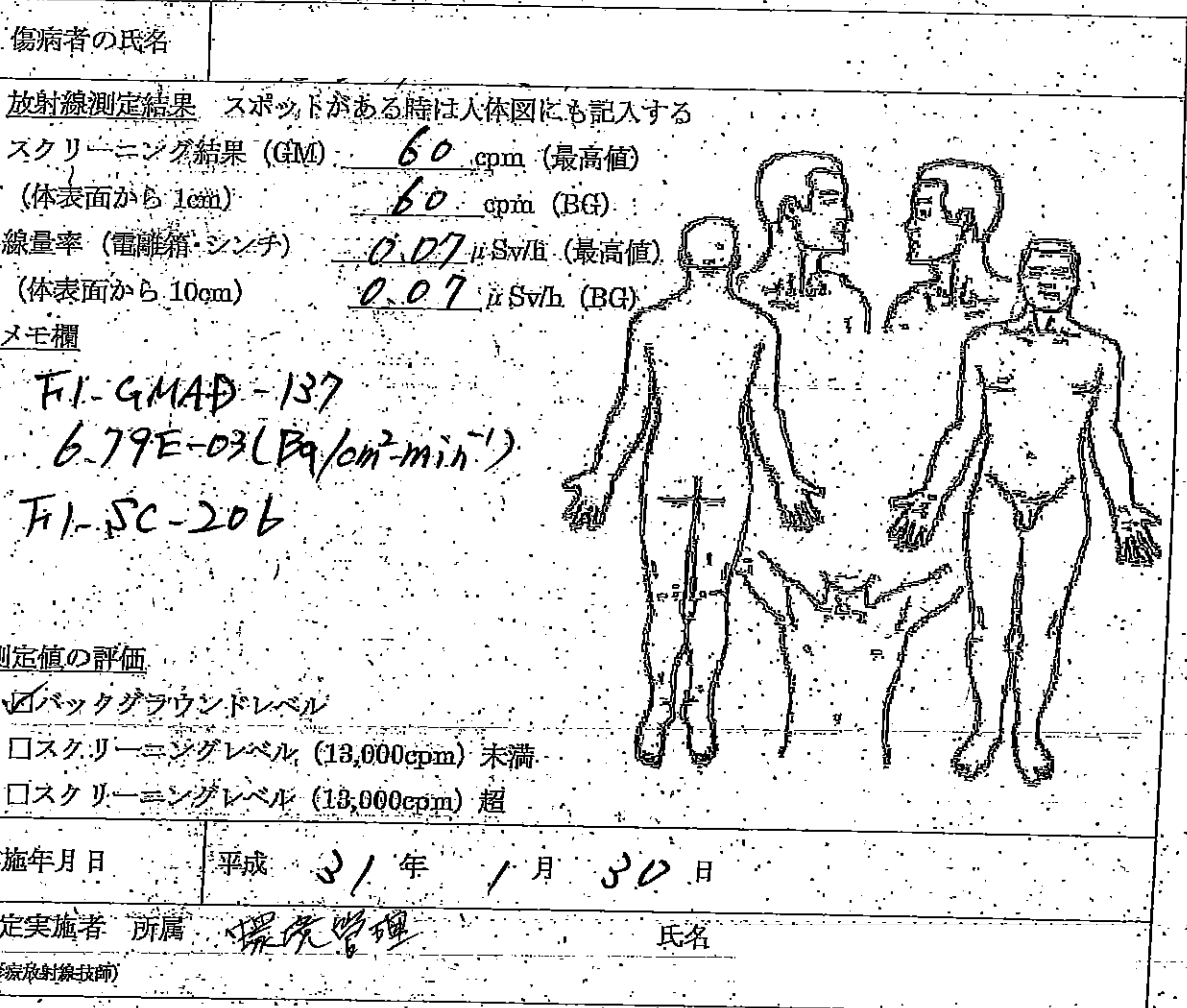 傷病者の氏名
放射線測定結果 スポットがある時は人体図にも記入する
スクリーニング結果 (GM) 60 cpm (最高値)
(体表面から 1cm) 60 cpm (BG)
線量率 (電離箱・シンチ) 0.07 μSv/h (最高値)
(体表面から 10cm) 0.07 μSv/h (BG)
メモ欄
F1-GMAD-137
6.79E-03(Bq/cm²-min⁻¹)
F1-SC-206
測定値の評価
☑バックグラウンドレベル
□スクリーニングレベル (13,000cpm) 未満
□スクリーニングレベル (13,000cpm) 超
施年月日 平成 31 年 1 月 30 日
定実施者 所属 環境管理 氏名
療放射線技師)